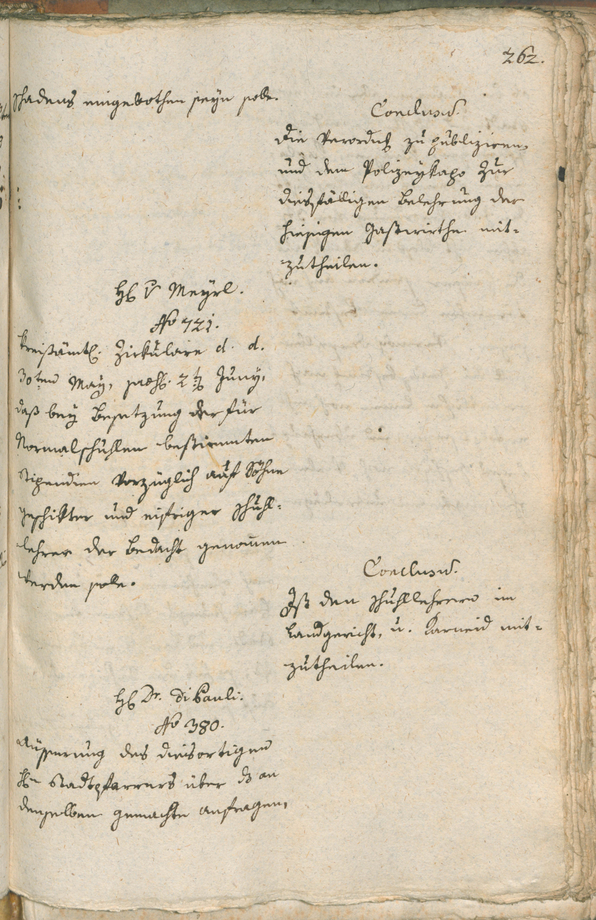 262.
Schadens eingebothen seyn solle.
Conclusum.
Die Verordng zu publiziren,
und dem Polizeykapo zur
diesfälligen Belehrung der
hiesigen Gastwirthe mit-
zutheilen.
H: v Meyrl.
No 721.
Kreisämtl. Zirkulare d. d.
30ten May, 
daß bey Besetzung der für
Normalschuhlen bestimmten
Stipendien vorzüglich auf Söhne
geschikter und eifriger Schuhl-
lehrer der Bedacht genommen
werden solle.
Conclusum.
Ist den Schuhllehrern im
Landgericht, u. Karneid mit-
zutheilen.
H: Dr. di Pauli.
No 380.
Äusserung des diesortigen
Hn Stadtpfarrers über die an
denselben gemachte Anfragen,